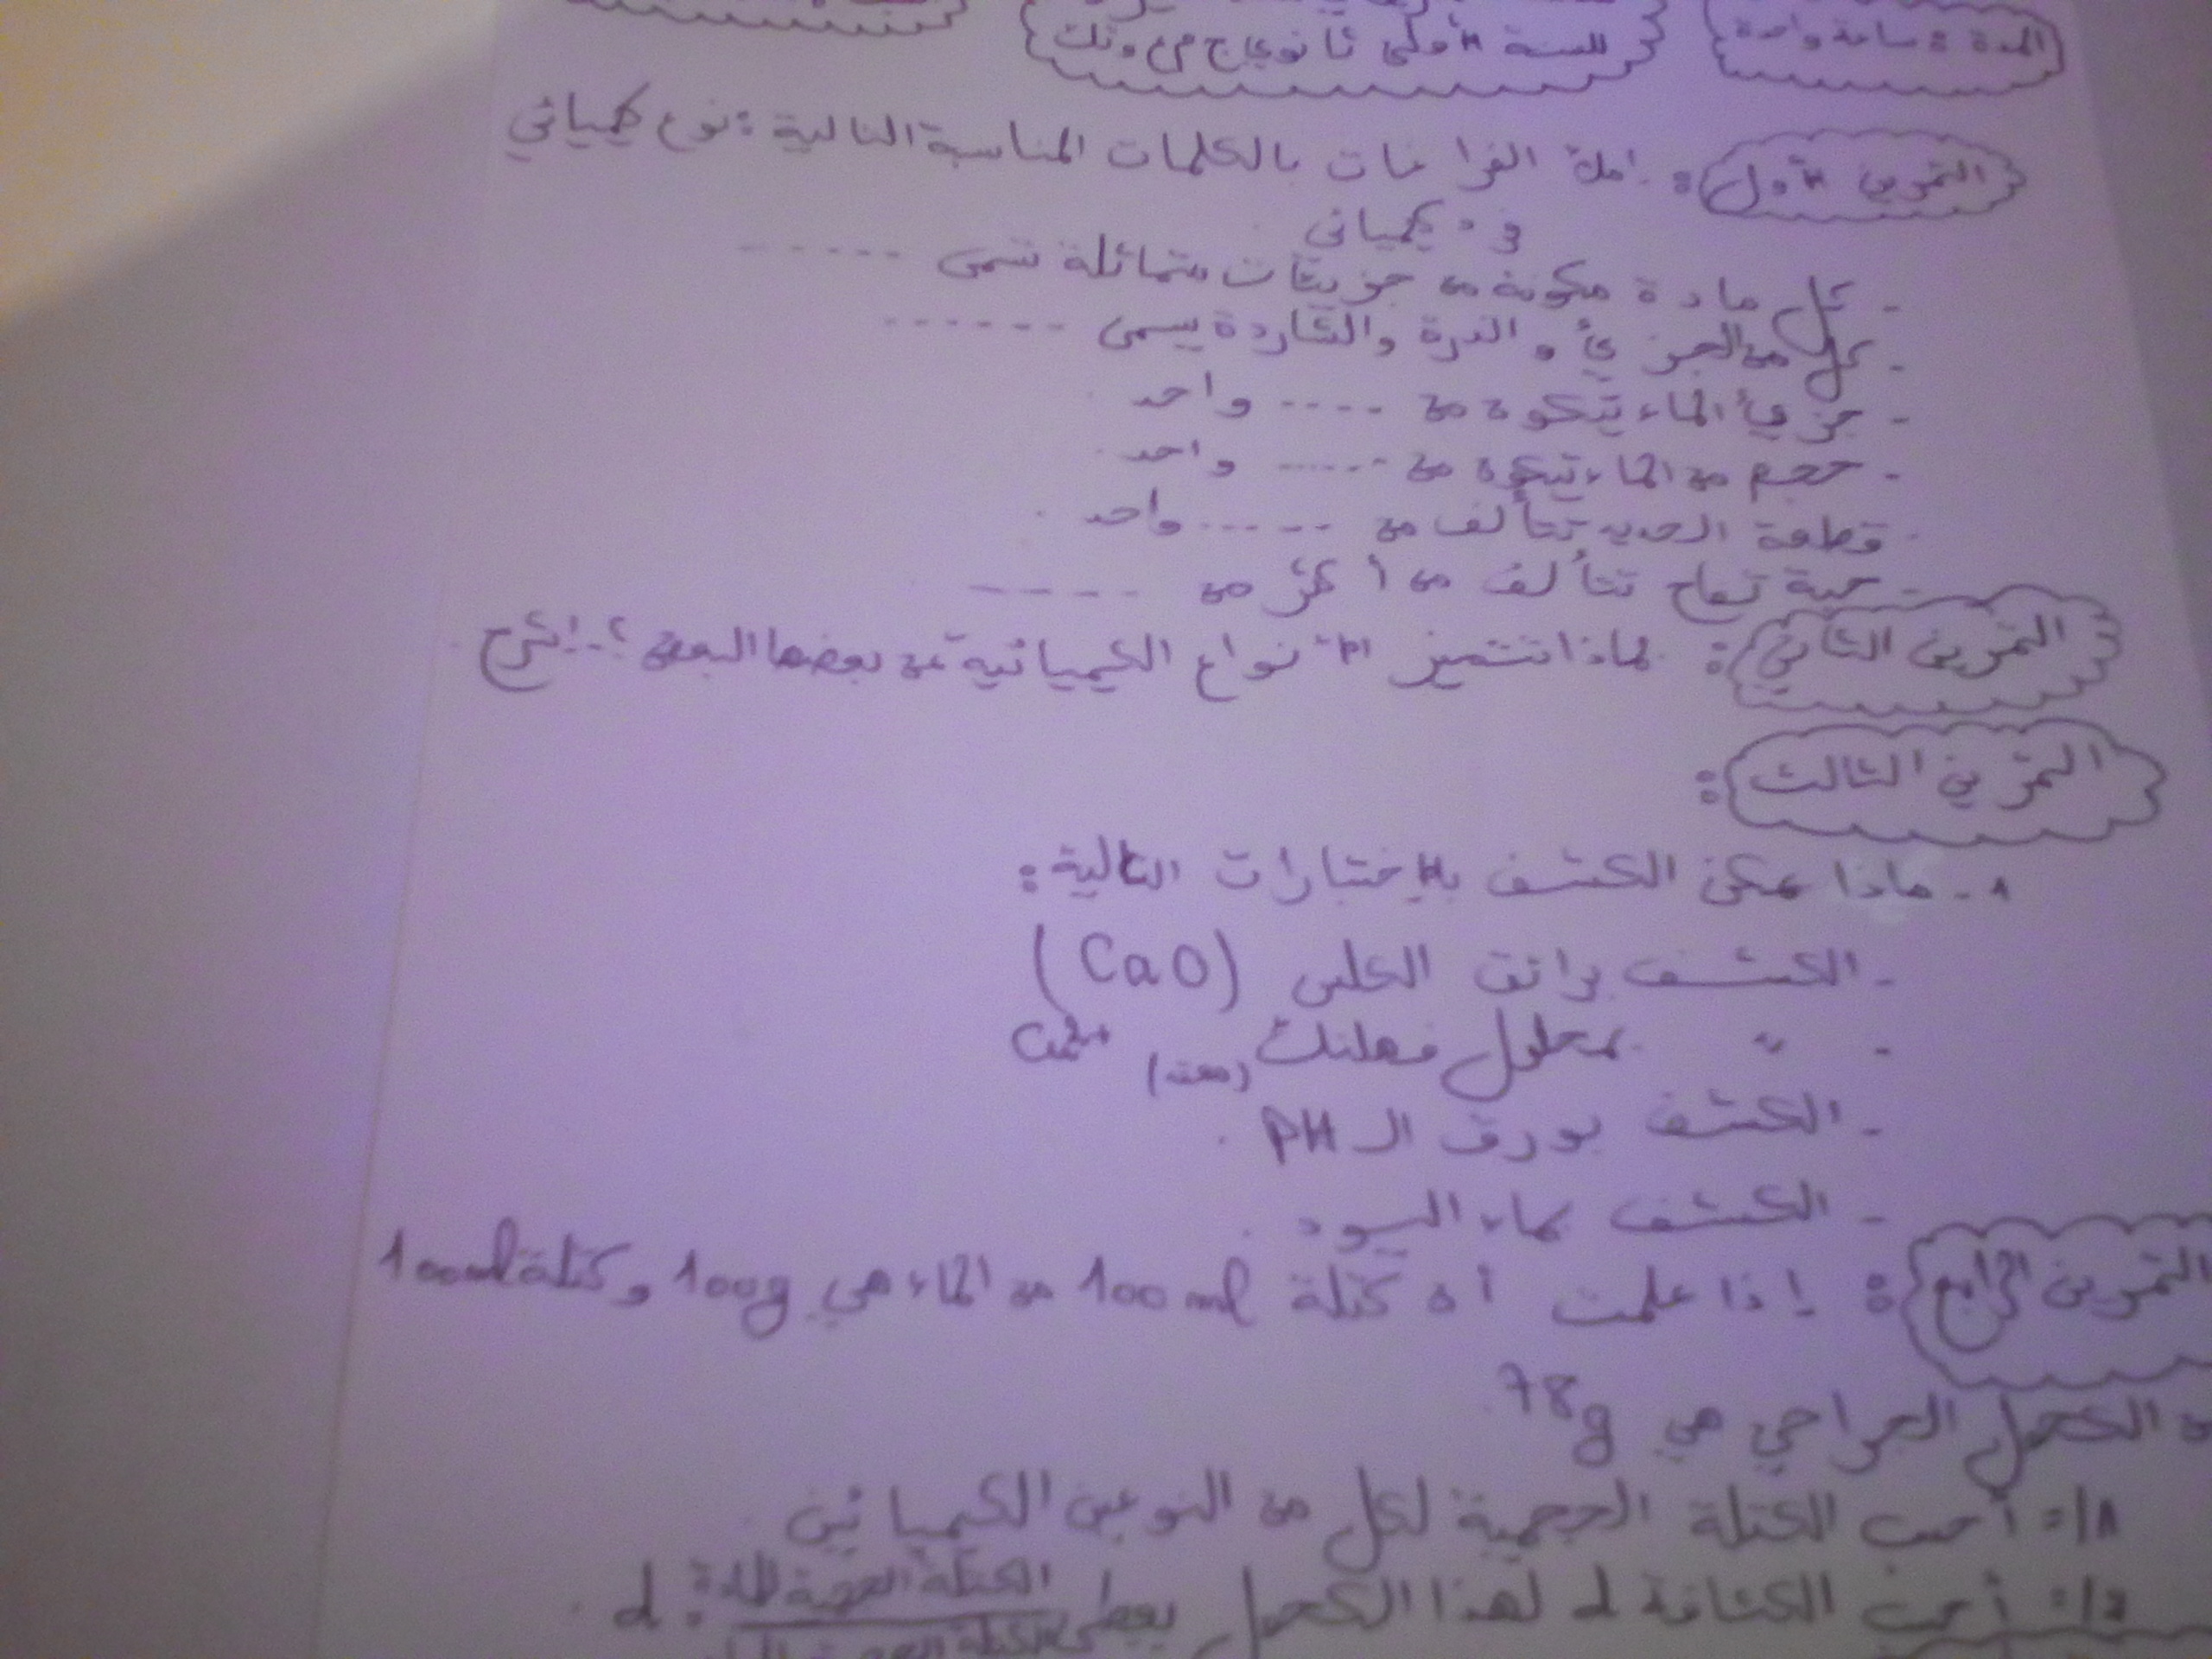 المدة : ساعة واحدة
للسنة الأولى ثانوي ج م ع وتك
التمرين الأول : املأ الفراغات بالكلمات المناسبة التالية : نوع كيميائي
فرد كيميائي
- كل مادة مكونة من جزيئات متماثلة تسمى ......
- كل من الجزيئ و الذرة والشاردة يسمى ......
- جزيئ الماء يتكون من .... واحد
- حجم من الماء يتكون من ..... واحد
- قطعة الحديد تتألف من ..... واحد
- حبة تفاح تتألف من أكثر من .....
التمرين الثاني : لماذا تتميز الأنواع الكيميائية عن بعضها البعض ؟ .. إشرح
التمرين الثالث :
1 - ماذا يمكن الكشف بالإختبارات التالية :
- الكشف برائق الكلس (CaO)
- " بمحلول فهلنك (معقد) Cu2+
- الكشف بورق الـ PH .
- الكشف بماء اليود .
التمرين الرابع : إذا علمت أن كتلة 100ml من الماء هي 100g و كتلة 100ml
من الكحول الجراحي هي 78g
1/= أحسب الكتلة الحجمية لكل من النوعين الكيميائيين
2/= أحسب الكثافة d لهذا الكحول يعطى الكتلة الحجمية للمادة : d